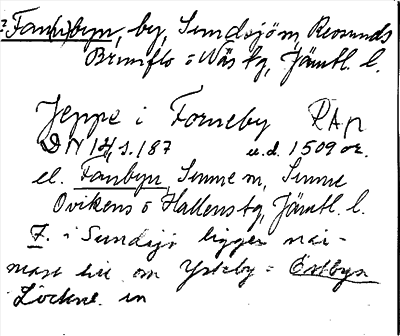 ? Fan(n)byn, by, Sundsjö sn, Revsunds
Brunflo o Näs tg, Jämtl. l.
Jeppe i Forneby RAp
DN 14, s. 187 u.d. 1509 or.
el. Fanbyn, Sunne sn, Sunne
Ovikens o Hallens tg, Jämtl. l.
F. i Sundsjö ligger när-
mast till om Ysteby = Östbyn
Lockne sn